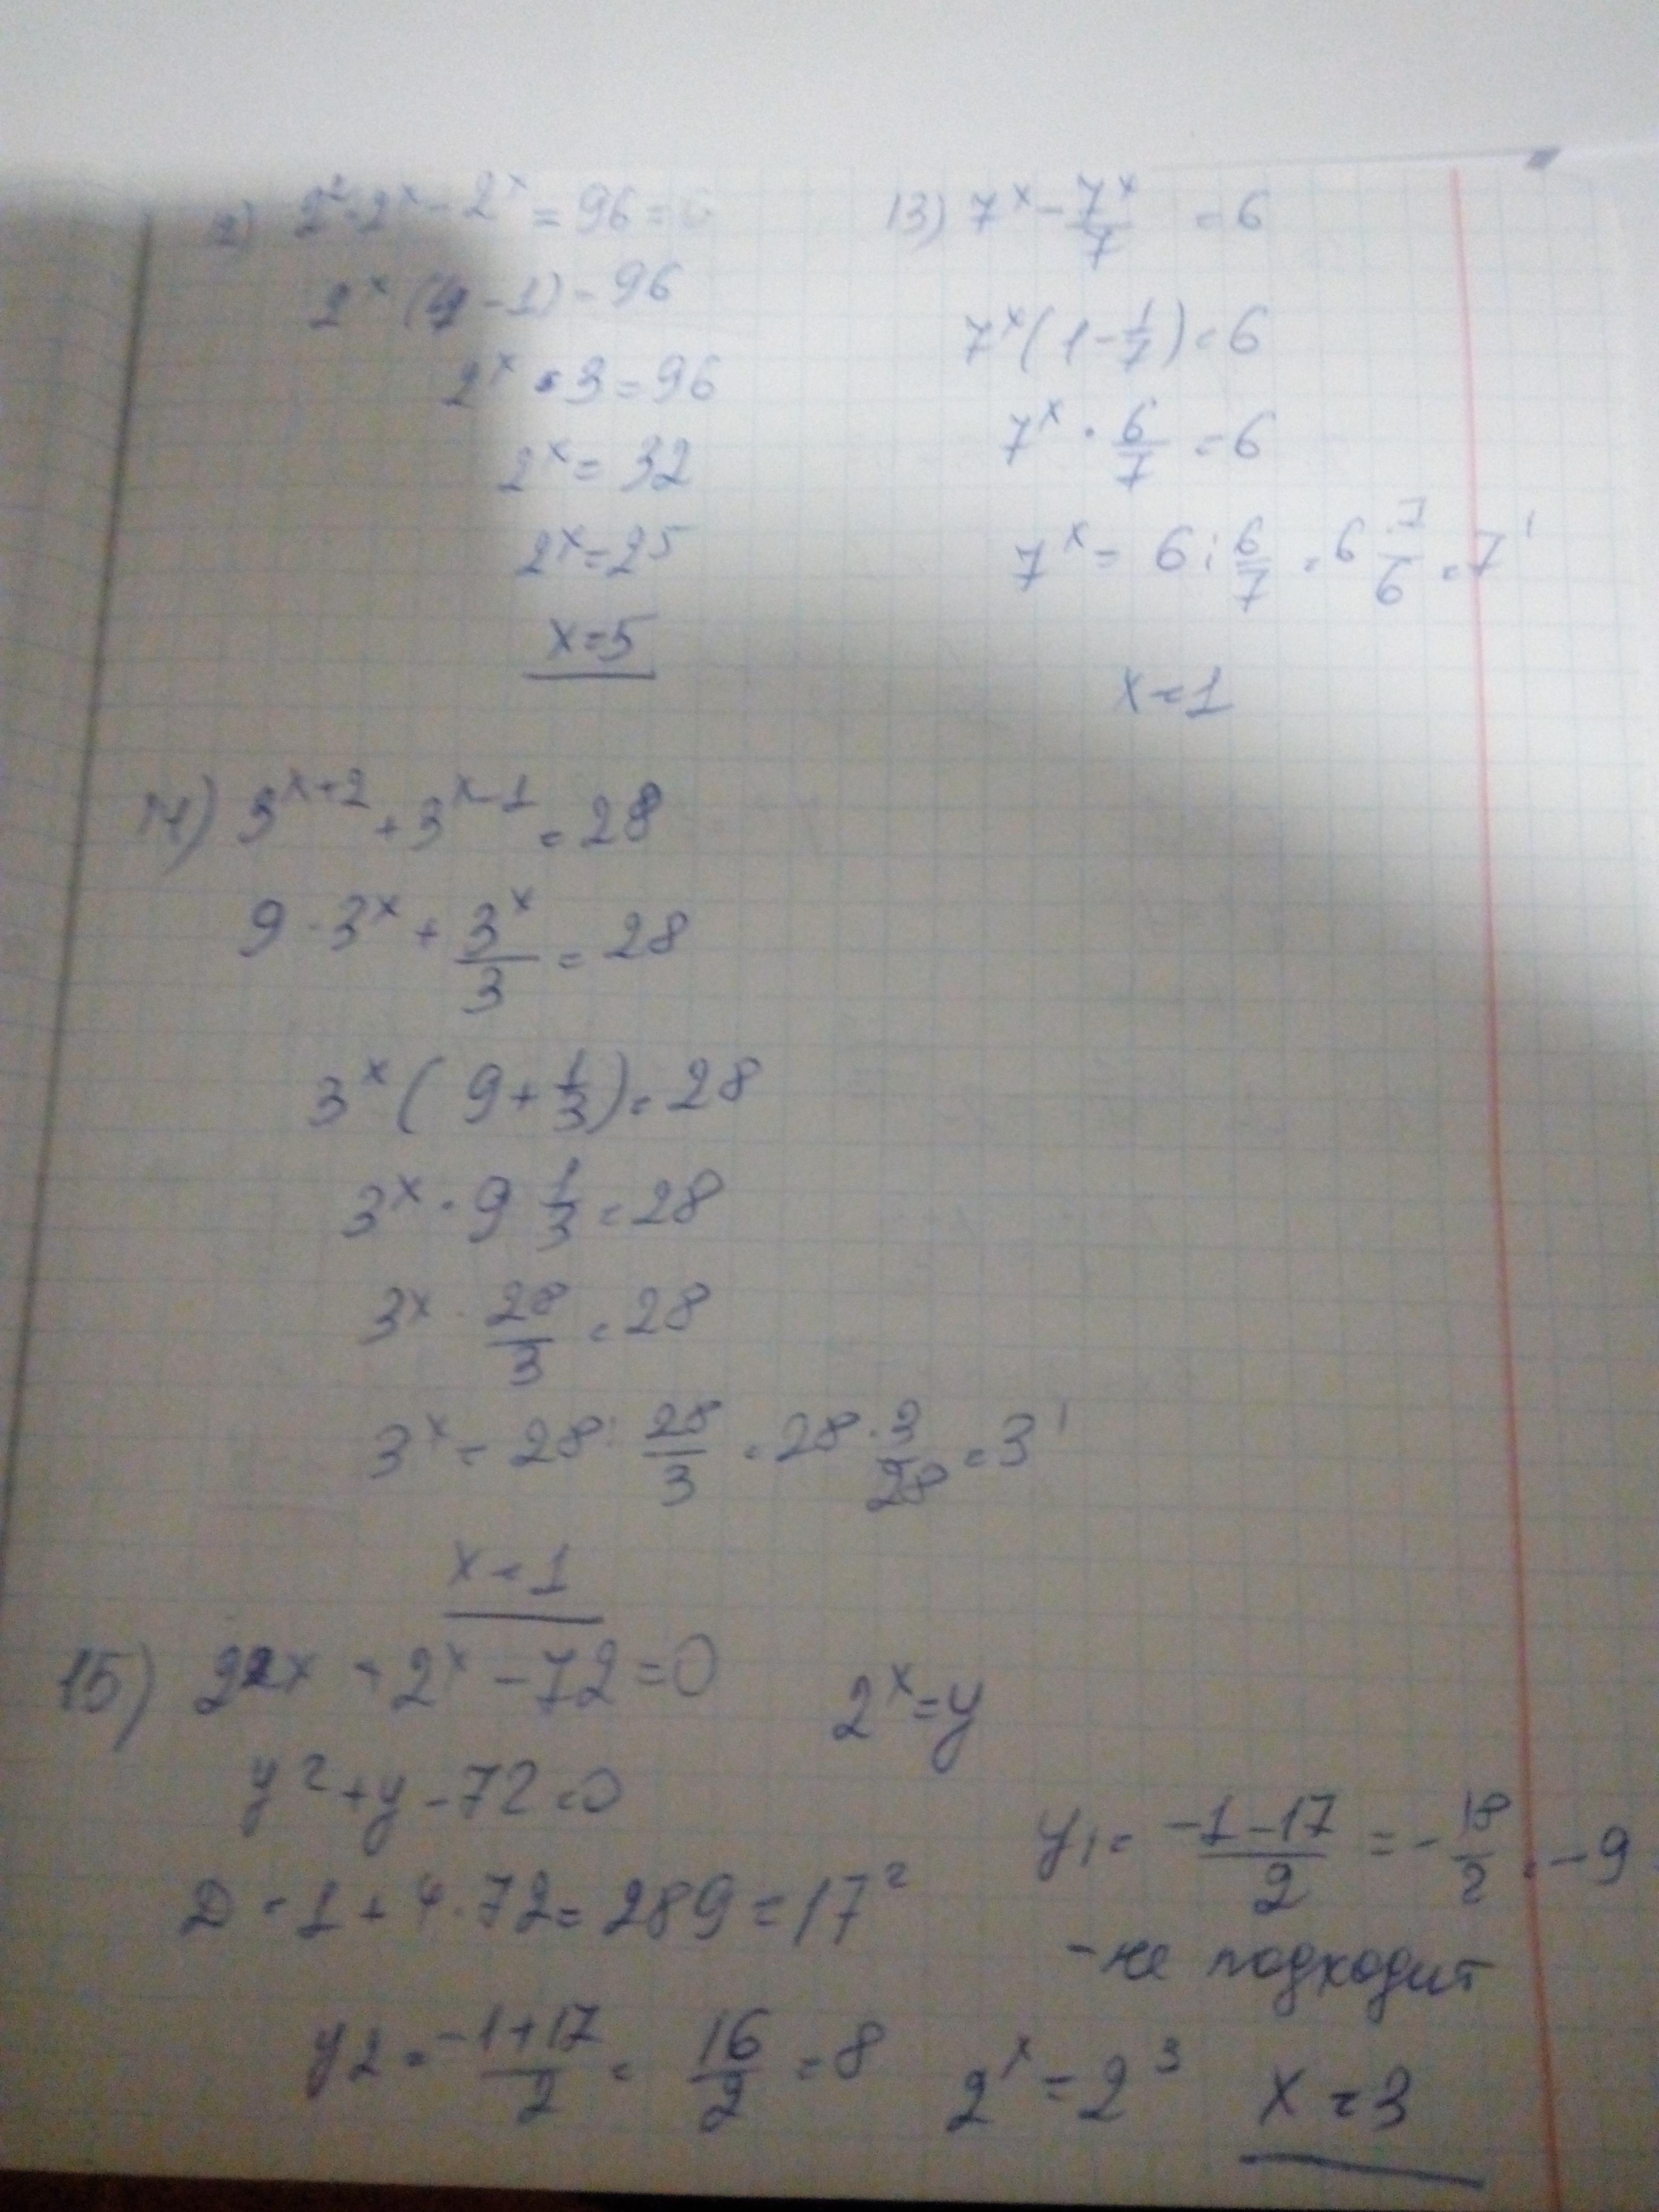 2) 2²·2ˣ-2ˣ=96=6
2ˣ(4-1)=96
2ˣ·3=96
2ˣ=32
2ˣ=2⁵
x=5
13) 7ˣ-7ˣ/7=6
7ˣ(1-1/7)=6
7ˣ·6/7=6
7ˣ=6:6/7=6·7/6=7¹
x=1
14) 3ˣ⁺²+3ˣ⁻¹=28
9·3ˣ+3ˣ/3=28
3ˣ(9+1/3)=28
3ˣ·9 1/3=28
3ˣ·28/3=28
3ˣ=28:28/3=28·3/28=3¹
x=1
15) 2²ˣ+2ˣ-72=0 2ˣ=y
y²+y-72=0
D=1+4·72=289=17²
y₁=(-1-17)/2=-18/2=-9
-не подходит
y2=(-1+17)/2=16/2=8 2ˣ=2³ x=3